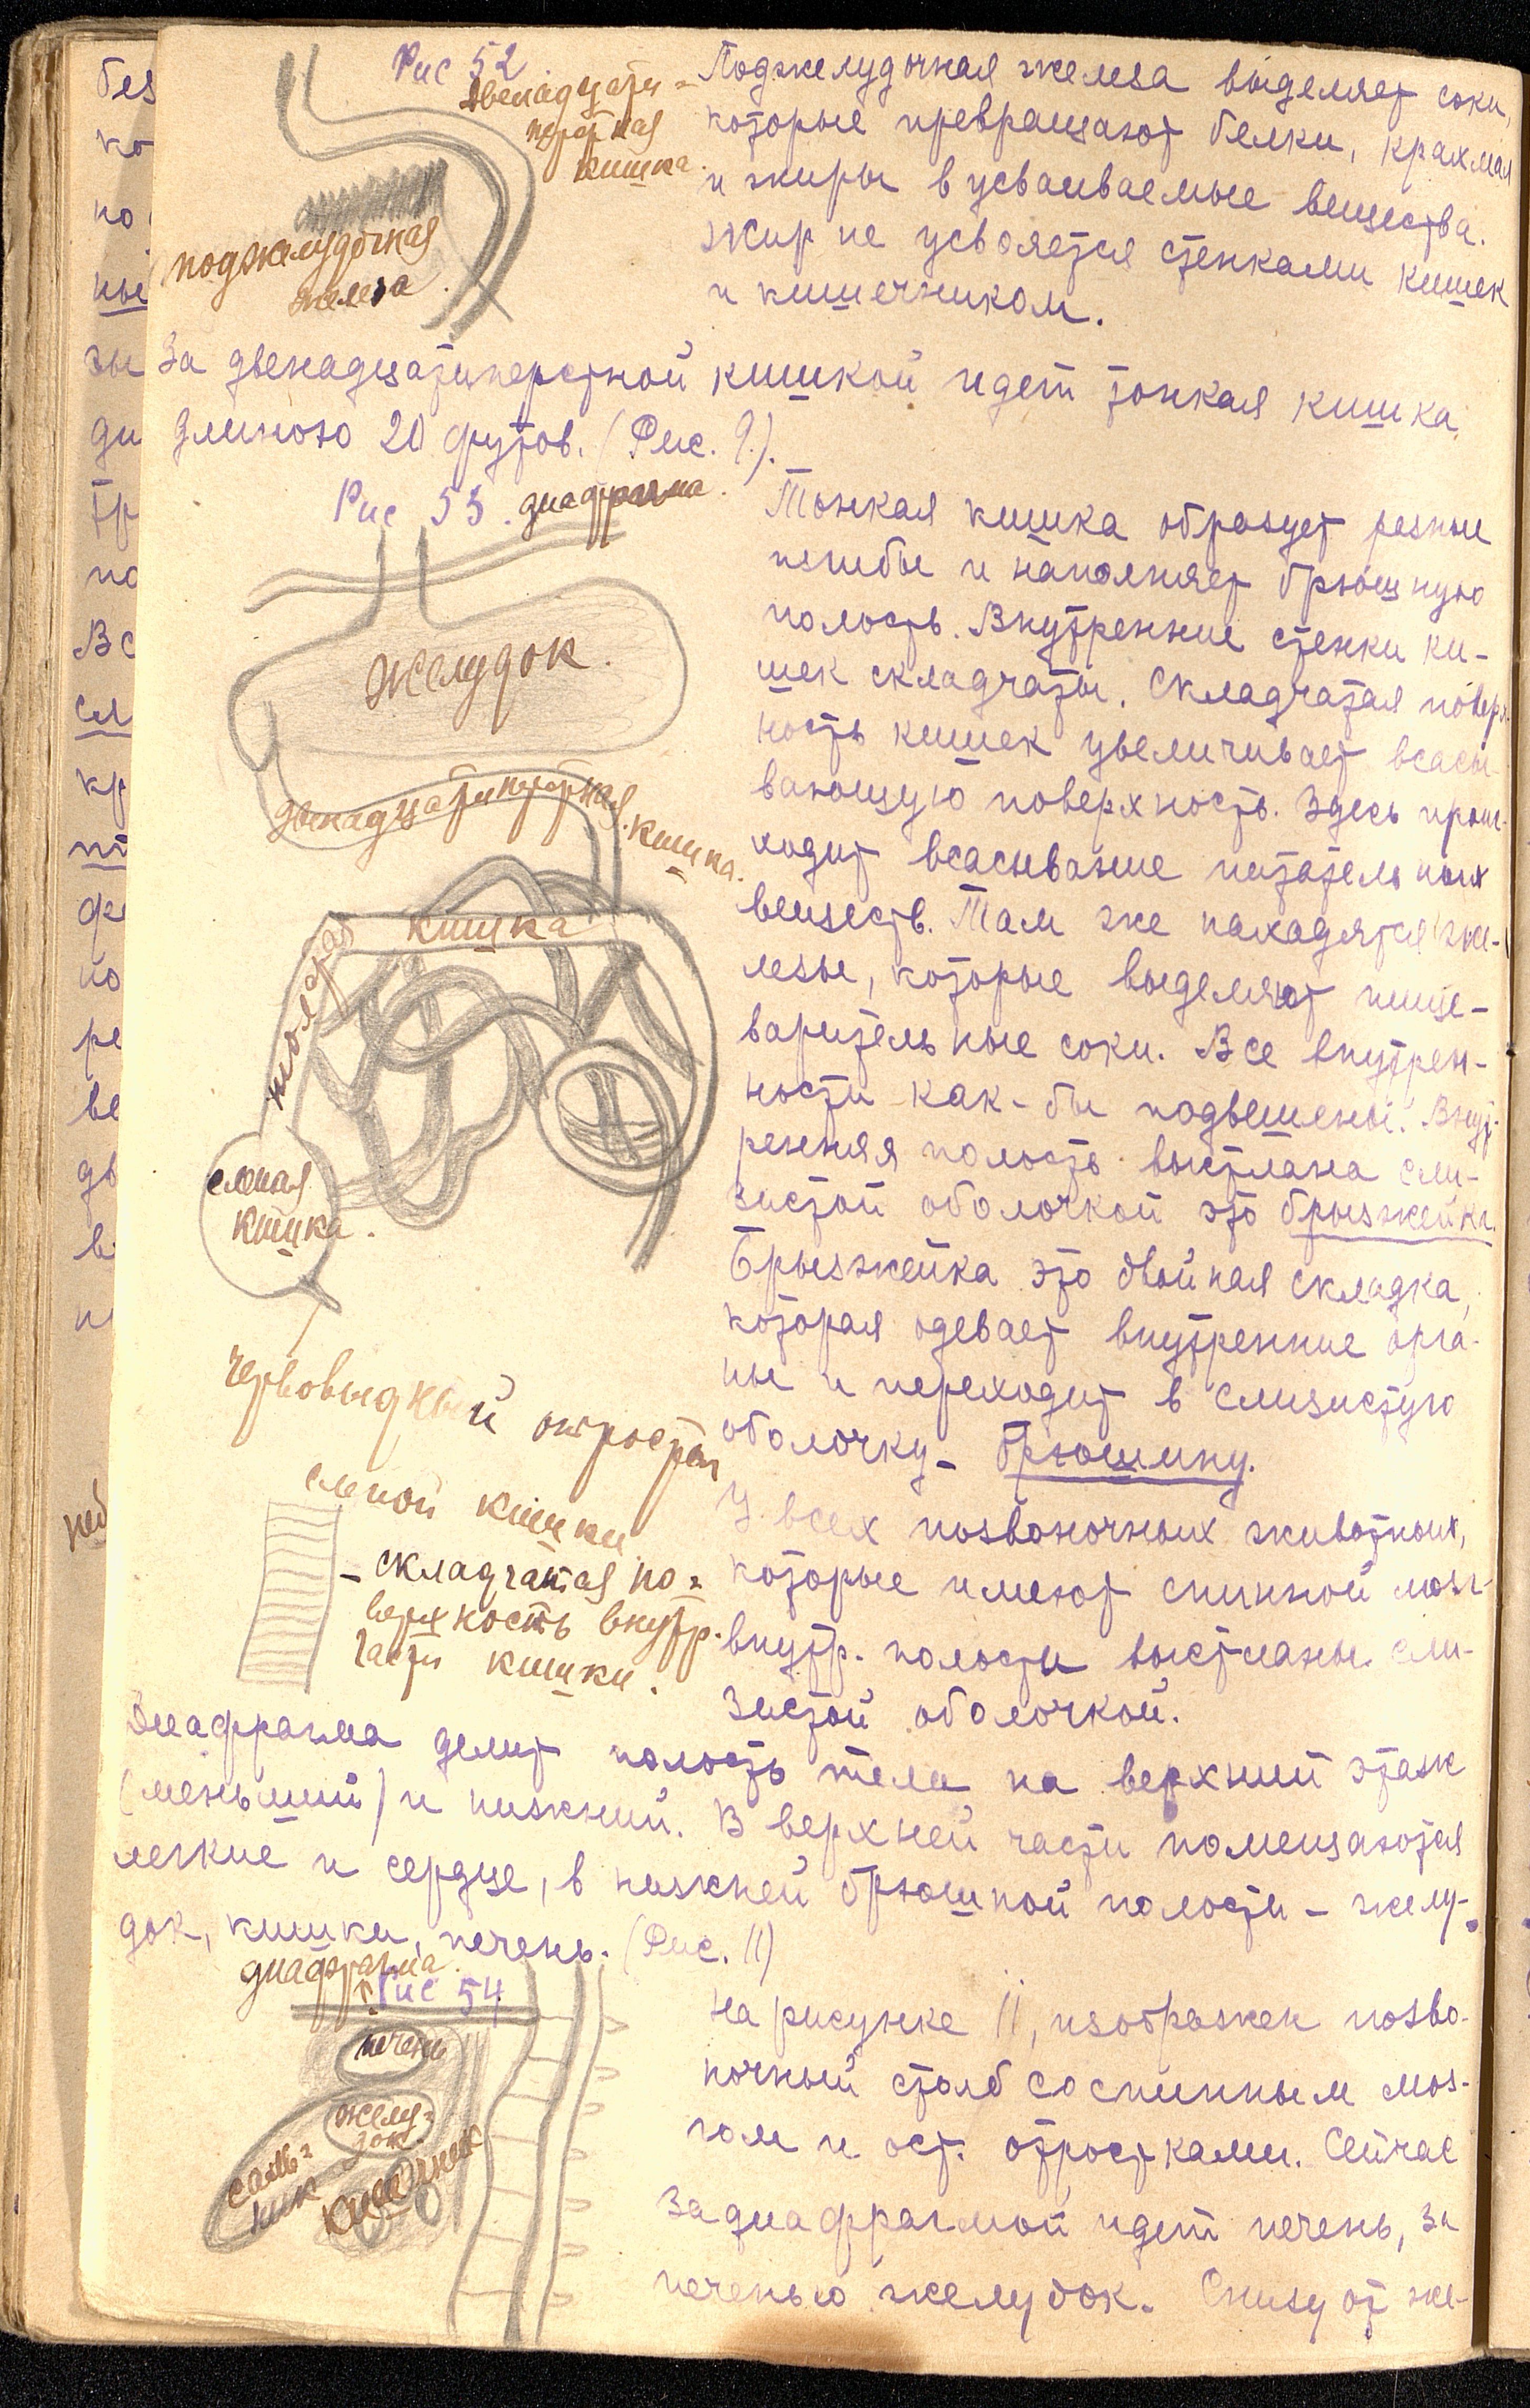 Рис 52
Двенадцати-
перстная
кишка.
поджелудочная
железа.
Поджелудочная железа выделяет соки,
которые превращают белки, крахмал
и жиры в усваиваемые вещества.
Жир не усвояется стенками кишек
и кишечником.
За двенадцатиперстной кишкой идет тонкая кишка
длиною 20 футов. (Рис. 9.).
Рис 53. диафрагма.
Желудок.
двенадцатиперстная
кишка.
кишка
слепая
кишка.
червовидный отросток
слепой кишки
- складчатая по-
верхность внутр.
части кишки.
Тонкая кишка образует разные
изгибы и наполняет брюшную
полость. Внутренние стенки ки-
шек складчаты. Складчатая поверх-
ность кишек увеличивает всасы-
вающую поверхность. Здесь проис-
ходит всасывание питательных
веществ. Там же находятся же-
лезы, которые выделяют пище-
варительные соки. Все внутрен-
ности как-бы подвешены. Внут-
ренняя полость выстлана сли-
зистой оболочкой это брызжейка.
Брызжейка это двойная складка,
которая одевает внутренние орга-
ны и переходит в слизистую
оболочку - брюшину.
У всех позвоночных животных,
которые имеют спинной мозг
внутр. полости выстланы сли-
зистой оболочкой.
Диафрагма делит полость тела на верхний этаж
(меньший) и нижний. В верхней части помещаются
легкие и сердце, в нижней брюшной полости - желу-
док, кишки, печень. (Рис. 11)
диафрагма.
Рис 54
печень
желу-
док.
саль-
ник
кишечник
На рисунке 11, изображен позво-
ночный столб со спинным моз-
гом и ост. отростками. Сейчас
за диафрагмой идет печень, за
печенью желудок. Снизу от же-